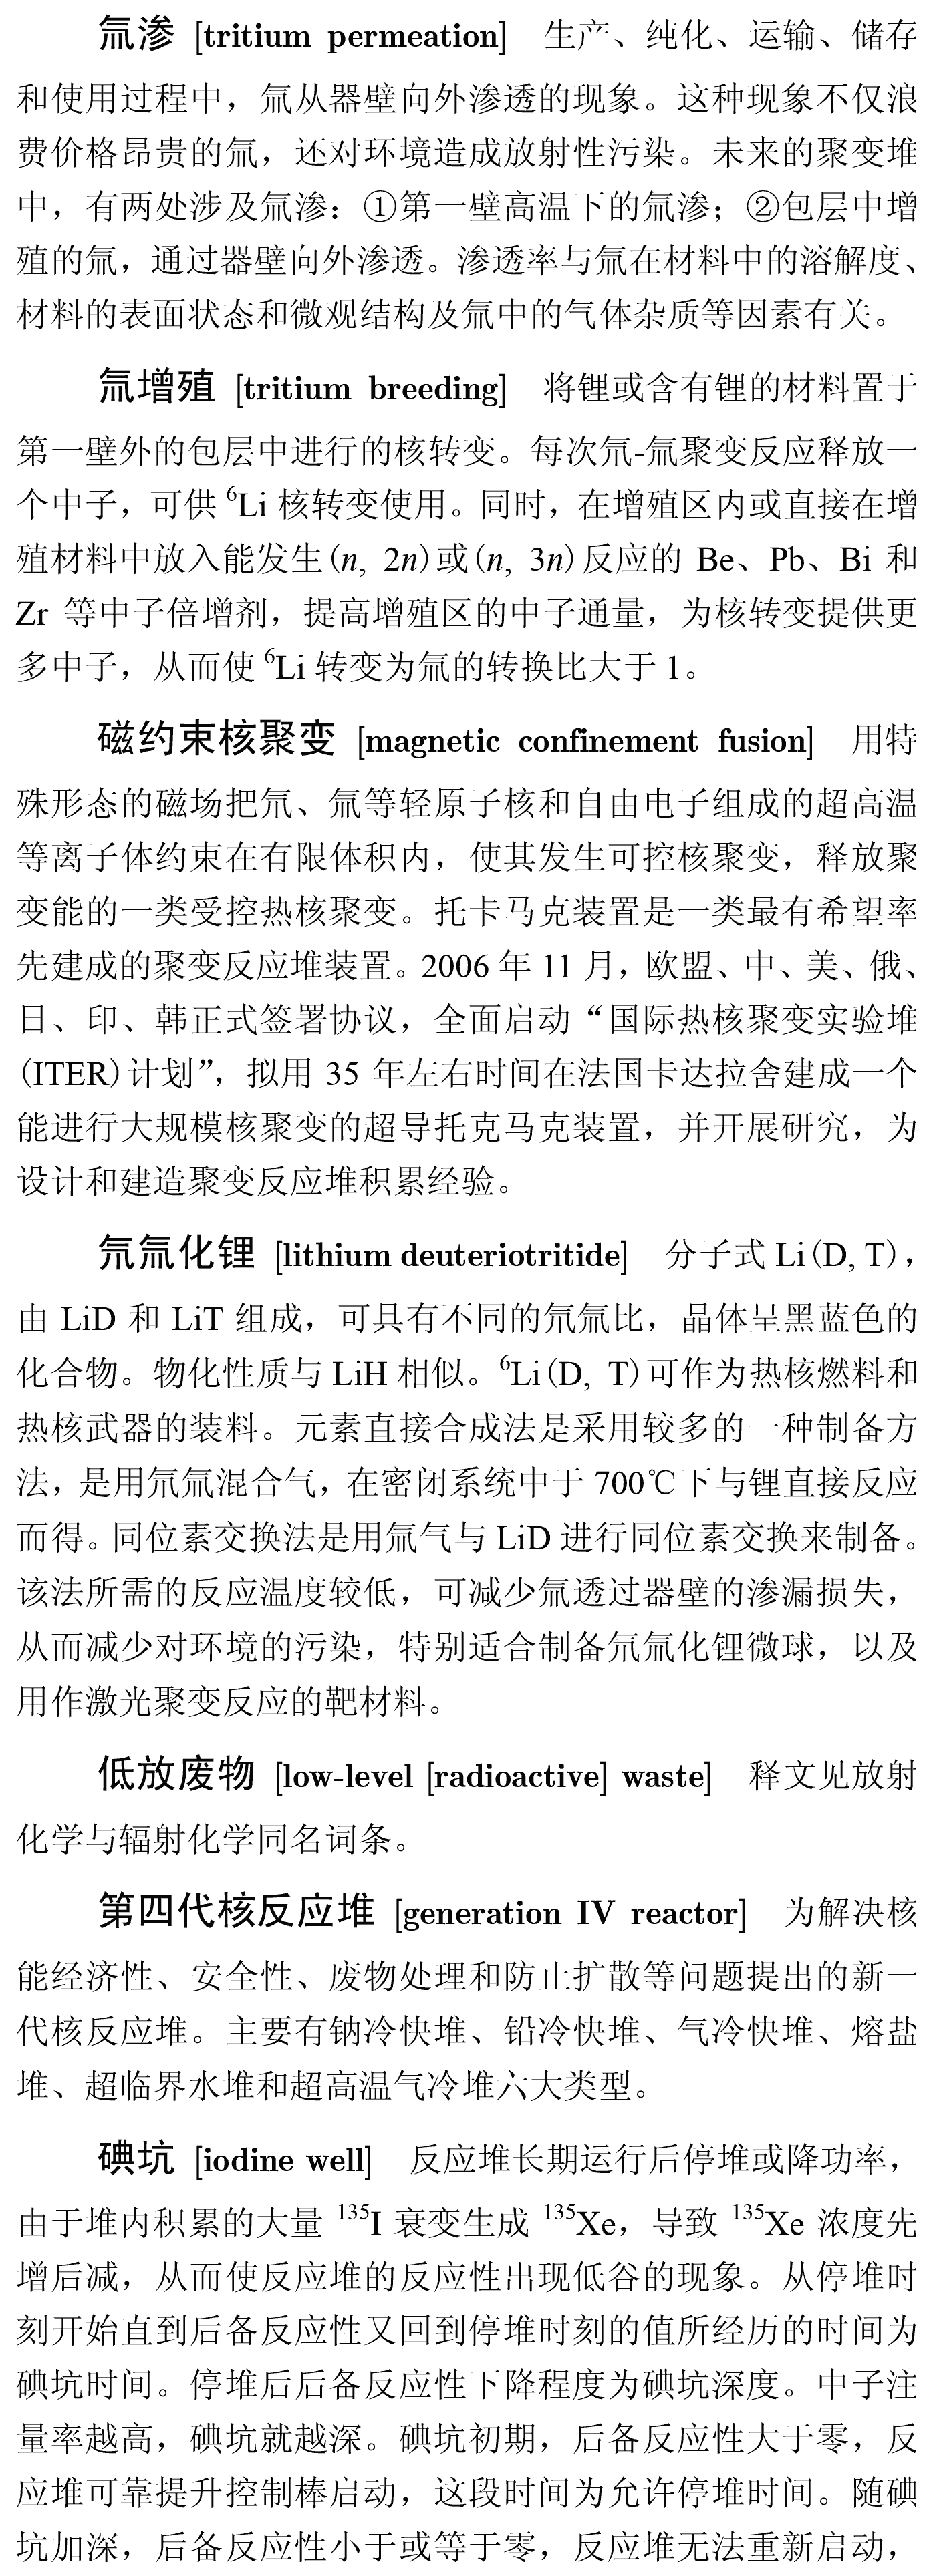 氚渗 [tritium permeation] 生产、纯化、运输、储存
和使用过程中，氚从器壁向外渗透的现象。这种现象不仅浪
费价格昂贵的氚，还对环境造成放射性污染。未来的聚变堆
中，有两处涉及氚渗：①第一壁高温下的氚渗；②包层中增
殖的氚，通过器壁向外渗透。渗透率与氚在材料中的溶解度、
材料的表面状态和微观结构及氚中的气体杂质等因素有关。
氚增殖 [tritium breeding] 将锂或含有锂的材料置于
第一壁外的包层中进行的核转变。每次氘-氚聚变反应释放一
个中子，可供 ⁶Li 核转变使用。同时，在增殖区内或直接在增
殖材料中放入能发生(n, 2n)或(n, 3n)反应的 Be、Pb、Bi 和
Zr 等中子倍增剂，提高增殖区的中子通量，为核转变提供更
多中子，从而使 ⁶Li 转变为氚的转换比大于 1。
磁约束核聚变 [magnetic confinement fusion] 用特
殊形态的磁场把氘、氚等轻原子核和自由电子组成的超高温
等离子体约束在有限体积内，使其发生可控核聚变，释放聚
变能的一类受控热核聚变。托卡马克装置是一类最有希望率
先建成的聚变反应堆装置。2006 年 11 月，欧盟、中、美、俄、
日、印、韩正式签署协议，全面启动“国际热核聚变实验堆
(ITER)计划”，拟用 35 年左右时间在法国卡达拉舍建成一个
能进行大规模核聚变的超导托克马克装置，并开展研究，为
设计和建造聚变反应堆积累经验。
氘氚化锂 [lithium deuteriotritide] 分子式 Li(D, T)，
由 LiD 和 LiT 组成，可具有不同的氘氚比，晶体呈黑蓝色的
化合物。物化性质与 LiH 相似。⁶Li(D, T)可作为热核燃料和
热核武器的装料。元素直接合成法是采用较多的一种制备方
法，是用氘氚混合气，在密闭系统中于 700℃下与锂直接反应
而得。同位素交换法是用氚气与 LiD 进行同位素交换来制备。
该法所需的反应温度较低，可减少氚透过器壁的渗漏损失，
从而减少对环境的污染，特别适合制备氘氚化锂微球，以及
用作激光聚变反应的靶材料。
低放废物 [low-level [radioactive] waste] 释文见放射
化学与辐射化学同名词条。
第四代核反应堆 [generation IV reactor] 为解决核
能经济性、安全性、废物处理和防止扩散等问题提出的新一
代核反应堆。主要有钠冷快堆、铅冷快堆、气冷快堆、熔盐
堆、超临界水堆和超高温气冷堆六大类型。
碘坑 [iodine well] 反应堆长期运行后停堆或降功率，
由于堆内积累的大量 ¹³⁵I 衰变生成 ¹³⁵Xe，导致 ¹³⁵Xe 浓度先
增后减，从而使反应堆的反应性出现低谷的现象。从停堆时
刻开始直到后备反应性又回到停堆时刻的值所经历的时间为
碘坑时间。停堆后后备反应性下降程度为碘坑深度。中子注
量率越高，碘坑就越深。碘坑初期，后备反应性大于零，反
应堆可靠提升控制棒启动，这段时间为允许停堆时间。随碘
坑加深，后备反应性小于或等于零，反应堆无法重新启动，